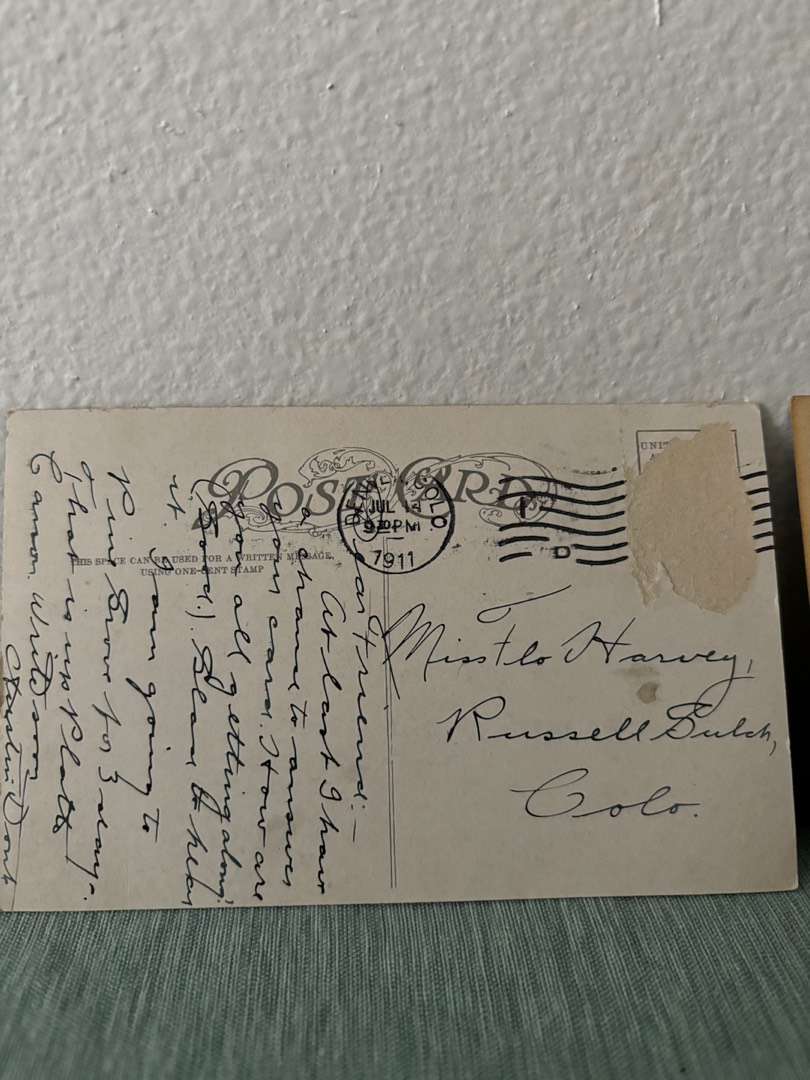 POST CARD
THIS SPACE CAN BE USED FOR A WRITTEN MESSAGE,
USING ONE-CENT STAMP
COLO
JUL
PM
1911
UNIT
Miss Flo Harvey,
Russell Gulch,
Colo.
Dear Friend:—
At last I have
a chance to answer
your card. How are
you all getting along.
(Good.) Glad to hear
it. I am going to
Pine Grove for 3 days.
That is up Platte
Canon. Write soon